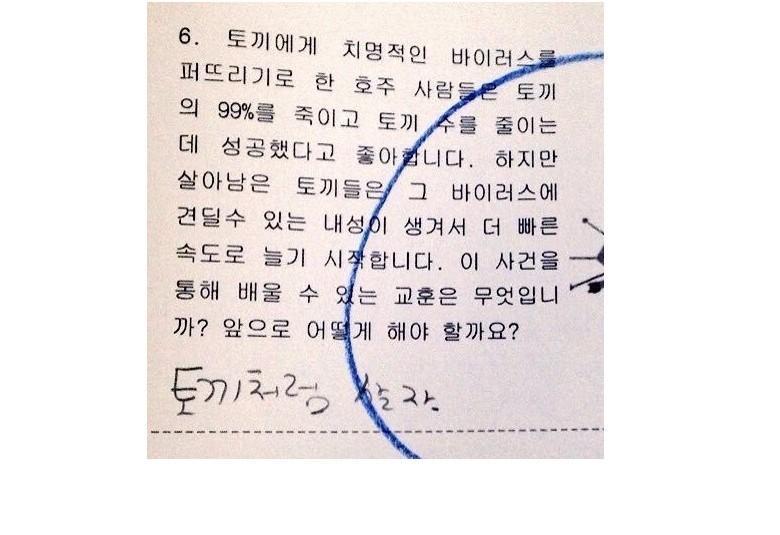 6. 토끼에게 치명적인 바이러스를
퍼뜨리기로 한 호주 사람들은 토끼
의 99%를 죽이고 토끼 수를 줄이는
데 성공했다고 좋아합니다. 하지만
살아남은 토끼들은 그 바이러스에
견딜수 있는 내성이 생겨서 더 빠른
속도로 늘기 시작합니다. 이 사건을
통해 배울 수 있는 교훈은 무엇입니
까? 앞으로 어떻게 해야 할까요?
토끼처럼 살자.